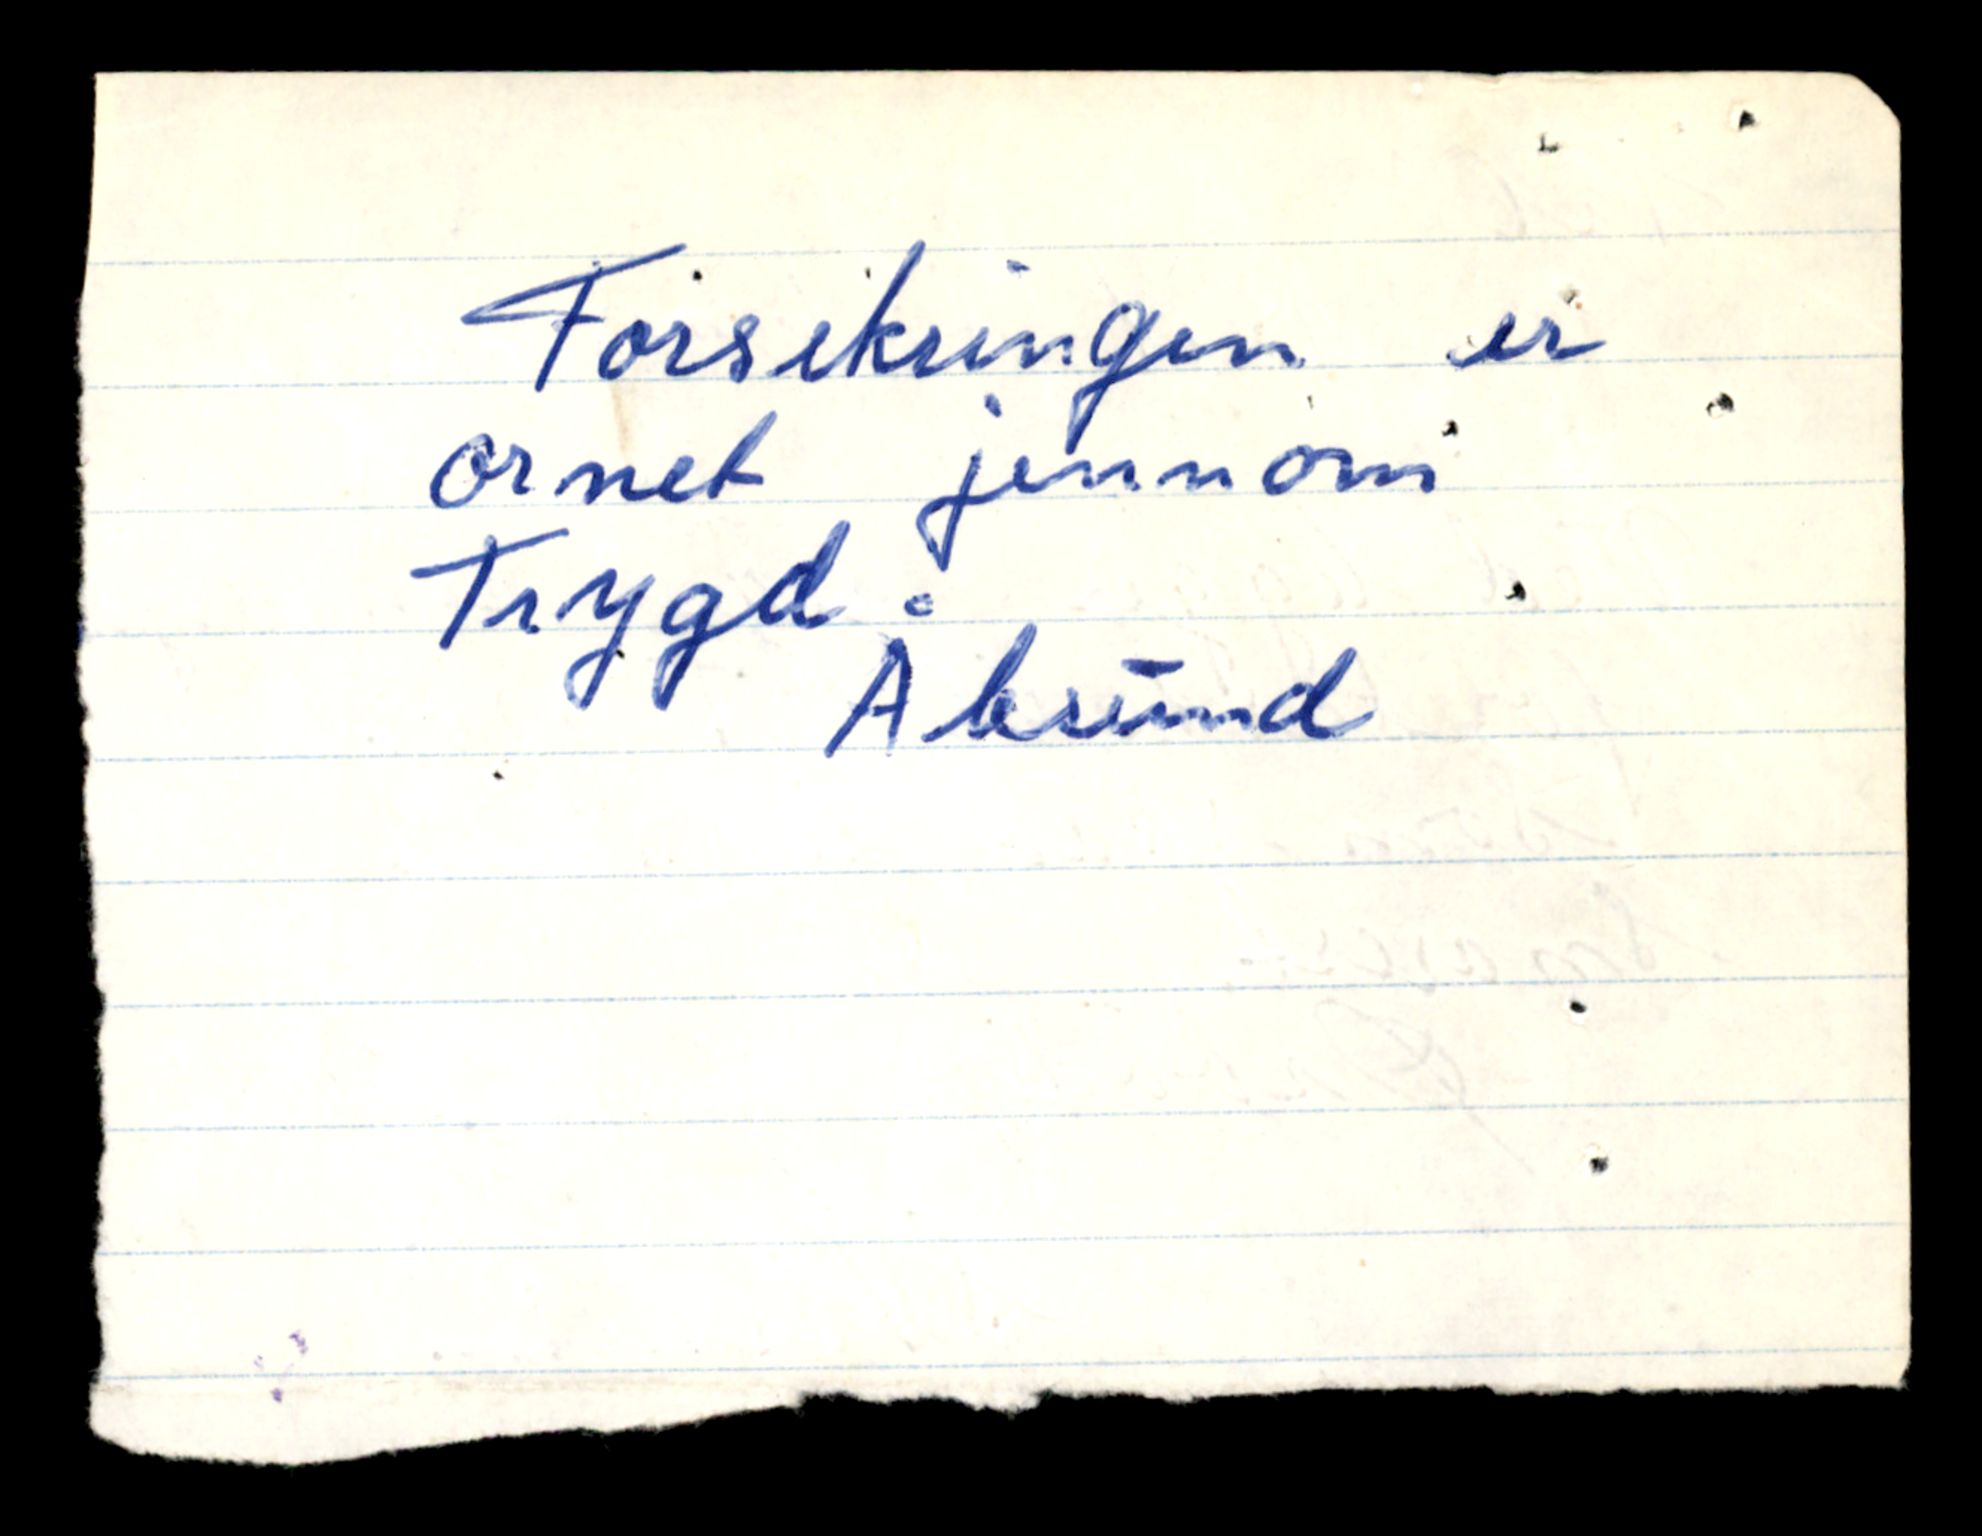 Forsekringen er
ornet jennom
Trygd.
Abrund